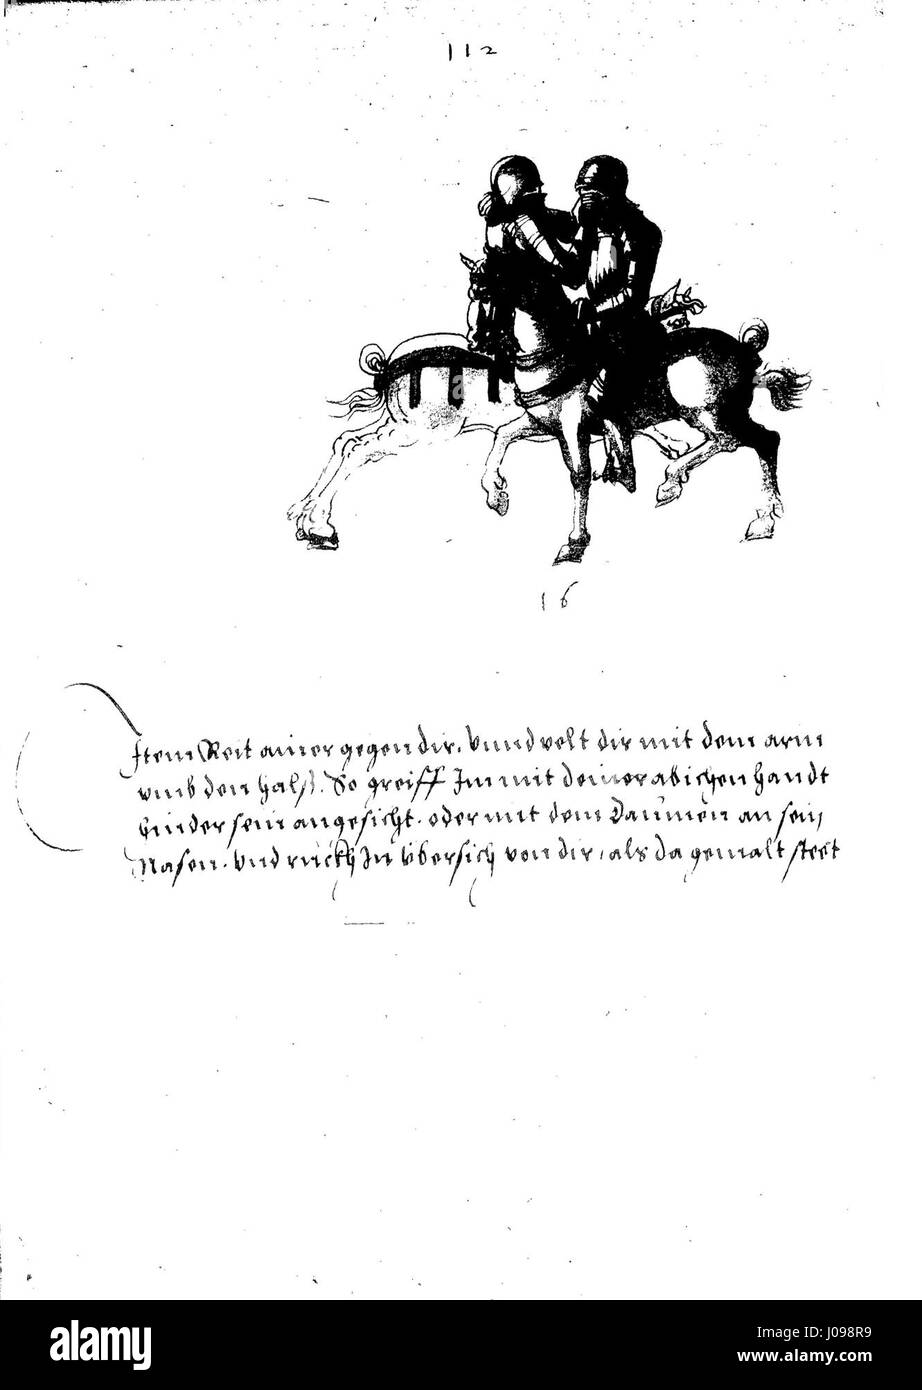 112
16
Item Reit ainer gegen dir. Vnnd velt dir mit dem arm
vmb den halß. So greiff Im mit deiner abichen handt
hinder sein angesicht. oder mit dem Daumen an sein
Nasen. Vnd rückh In übersich von dir, als da gemalt steet
a
alamy stock photo
J098R9
www.alamy.com